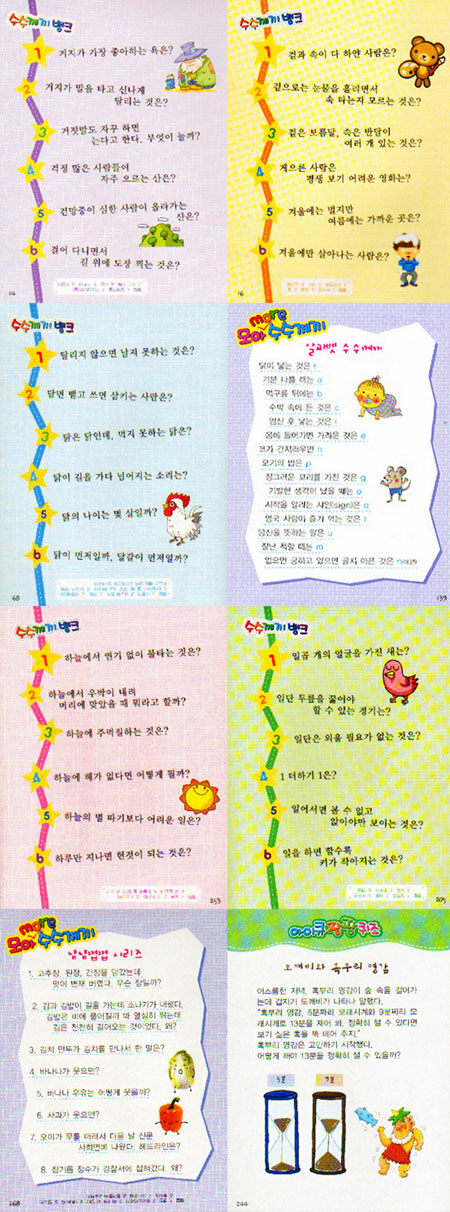 수수께끼 뱅크
1 거지가 가장 좋아하는 욕은?
2 거지가 말을 타고 신나게
달리는 것은?
3 거짓말도 자꾸 하면
는다고 한다. 무엇이 늘까?
4 걱정 많은 사람들이
자주 오르는 산은?
5 건망증이 심한 사람이 올라가는
산은?
6 걸어 다니면서
길 위에 도장 찍는 것은?
14
수수께끼 뱅크
1 겉과 속이 다 하얀 사람은?
2 겉으로는 눈물을 흘리면서
속 타는지 모르는 것은?
3 겉은 보름달, 속은 반달이
여러 개 있는 것은?
4 게으른 사람은
평생 보기 어려운 영화는?
5 겨울에는 멀지만
여름에는 가까운 곳은?
6 겨울에만 살아나는 사람은?
16
수수께끼 뱅크
1 달리지 않으면 남지 못하는 것은?
2 달면 뱉고 쓰면 삼키는 사람은?
3 닭은 닭인데, 먹지 못하는 닭은?
4 닭이 길을 가다 넘어지는 소리는?
5 닭의 나이는 몇 살일까?
6 닭이 먼저일까, 달걀이 먼저일까?
68
more
모아 수수께끼
알파벳 수수께끼
닭이 낳는 것은 r
기분 나쁠 때는 a
먹구름 뒤에는 b
수박 속에 든 것은 c
임신 후 낳는 것은 i
몸에 들어가면 가려운 것은 e
코가 간지러우면 h
모기의 밥은 p
징그러운 꼬리를 가진 것은 g
기발한 생각이 났을 때는 o
시작을 알리는 사인(sign)은 q
영국 사람이 즐겨 먹는 것은 t
당신을 뜻하는 말은 u
잘난 척할 때는 m
없으면 궁하고 있으면 골치 아픈 것은
139
수수께끼 뱅크
1 하늘에서 연기 없이 불타는 것은?
2 하늘에서 우박이 내려
머리에 맞았을 때 뭐라고 할까?
3 하늘에 주먹질하는 것은?
4 하늘에 해가 없다면 어떻게 될까?
5 하늘의 별 따기보다 어려운 일은?
6 하루만 지나면 헌것이 되는 것은?
253
수수께끼 뱅크
1 일곱 개의 얼굴을 가진 새는?
2 일단 무릎을 꿇어야
할 수 있는 경기는?
3 일단은 외울 필요가 없는 것은?
4 1 더하기 1은?
5 일어서면 볼 수 없고
앉아야만 보이는 것은?
6 일을 하면 할수록
키가 작아지는 것은?
205
more
모아 수수께끼
냠냠쩝쩝 시리즈
1. 고추장, 된장, 간장을 담갔는데
맛이 변해 버렸다. 무슨 장일까?
2. 김과 김밥이 길을 가는데 소나기가 내렸다.
김밥은 비에 풀어질까 봐 열심히 뛰는데
김은 천천히 걸어오는 것이었다. 왜?
3. 김치 만두가 김치를 만나서 한 말은?
4. 바나나가 웃으면?
5. 바나나 우유는 어떻게 웃을까?
6. 사과가 웃으면?
7. 오이가 무를 때려서 다음 날 신문
사회면에 나왔다. 헤드라인은?
8. 참기름 장수가 경찰서에 잡혀갔다. 왜?
268
아이큐 팡팡 퀴즈
도깨비와 혹부리 영감
어스름한 저녁, 혹부리 영감이 숲 속을 걸어가
는데 갑자기 도깨비가 나타나 말했다.
"혹부리 영감, 5분짜리 모래시계와 9분짜리 모
래시계로 13분을 재어 봐. 정확히 잴 수 있다면
보기 싫은 혹을 떼어 주지."
혹부리 영감은 고민하기 시작했다.
어떻게 해야 13분을 정확히 잴 수 있을까?
5분
9분
244